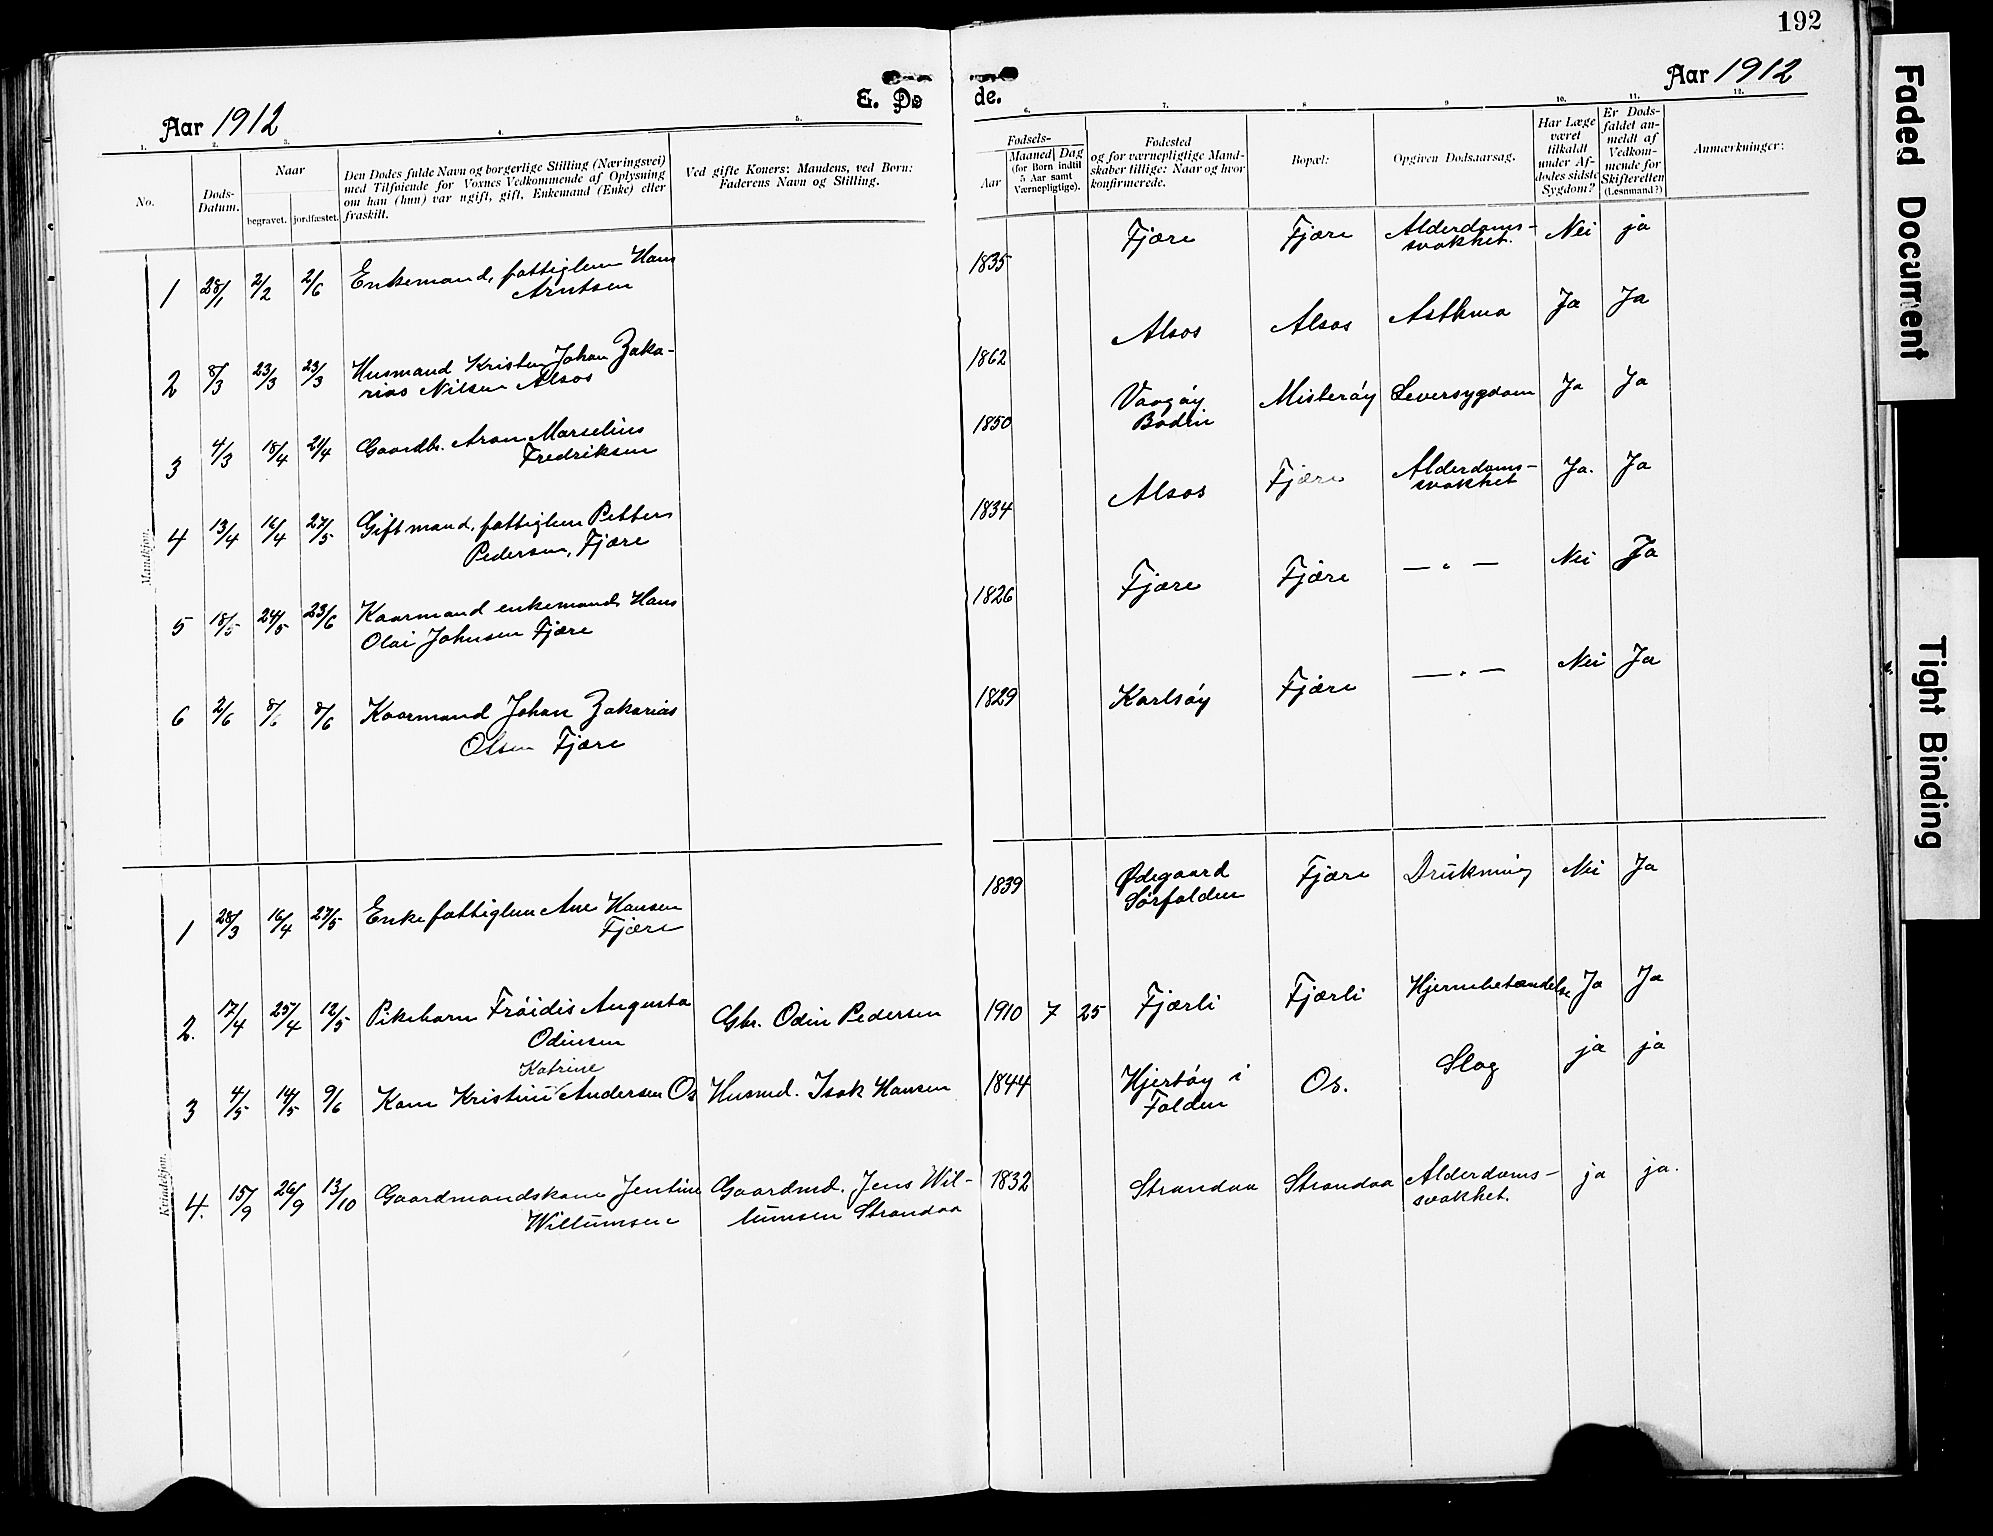 192
Aar 1912
E. Dø
de.
Aar 1912
1. 2. 3. 4. 5. 6. 7. 8 9 10. 11. 12.
No.
Døds-
Datum.
Naar
begravet. jordfæstet.
Den Dødes fulde Navn og borgerlige Stilling (Næringsvei)
med Tilføiende for Voxnes Vedkommende af Oplysning
om han (hun) var ugift, gift, Enkemand (Enke) eller
fraskilt.
Ved gifte Koners: Mandens, ved Børn:
Faderens Navn og Stilling.
Fødsels-
Aar
Maaned Dag
(for Børn indtil
5 Aar samt
Værnepligtige).
Fødested
og for værnepligtige Mand-
skaber tillige: Naar og hvor
konfirmerede.
Bopæl:
Opgiven Dødsaarsag.
Har Læge
været
tilkaldt
under Af-
dødes sidste
Sygdom?
Er Døds-
faldet an-
meldt af
Vedkom-
mende for
Skifteretten
(Lensmand?)
Anmærkninger:
Mandkjøn.
1 28/1 2/2 2/6 Enkemand, fattiglem Hans
Arntsen
1835 Fjære Fjære Alderdoms-
svakhet. Nei ja
2 8/3 23/3 23/3 Husmand Kristen Johan Zaka-
rias Nilsen Alsos
1862 Alsos Alsos Asthma Ja Ja
3 4/3 18/4 21/4 Gaardbr. Aron Marselius
Fredriksen
1850 Vaagøy
Bodin Misterøy Leversygdom Ja Ja
4 13/4 16/4 27/5 Gift mand, fattiglem Petter
Pedersen, Fjære
1834 Alsos Fjære Alderdoms-
svakhet Ja. Ja
5 18/5 24/5 23/6 Kaarmand enkemand Hans
Olai Johnsen Fjære
1826 Fjære Fjære — " — Nei Ja
6 2/6 8/6 8/6 Kaarmand Johan Zakarias
Olsen Fjære
1829 Karlsøy Fjære — " — Nei Ja
Kvindekjøn.
1 28/3 16/4 27/5 Enke fattiglem Ane Hansen
Fjære
1839 Ødegaard
Sørfolden Fjære Drukning Nei Ja
2. 17/4 25/4 12/5 Pikebarn Frøidis Augusta
Odinsen
Gbr. Odin Pedersen 1910 7 25 Fjærli Fjærli Hjernebetændelse Ja Ja
Katrine
3 4/5 14/5 9/6 Kone Kristine Andersen Os Husmd. Isak Hansen 1844 Hjertøy i
Folden Os. Slag ja ja
4. 15/9 26/9 13/10 Gaardmandskone Jentine
Willumsen
Gaardmd. Jens Wil-
lumsen Strandaa
1832 Strandaa Strandaa Alderdoms-
svakhet. ja ja.
Faded Document
Tight Binding